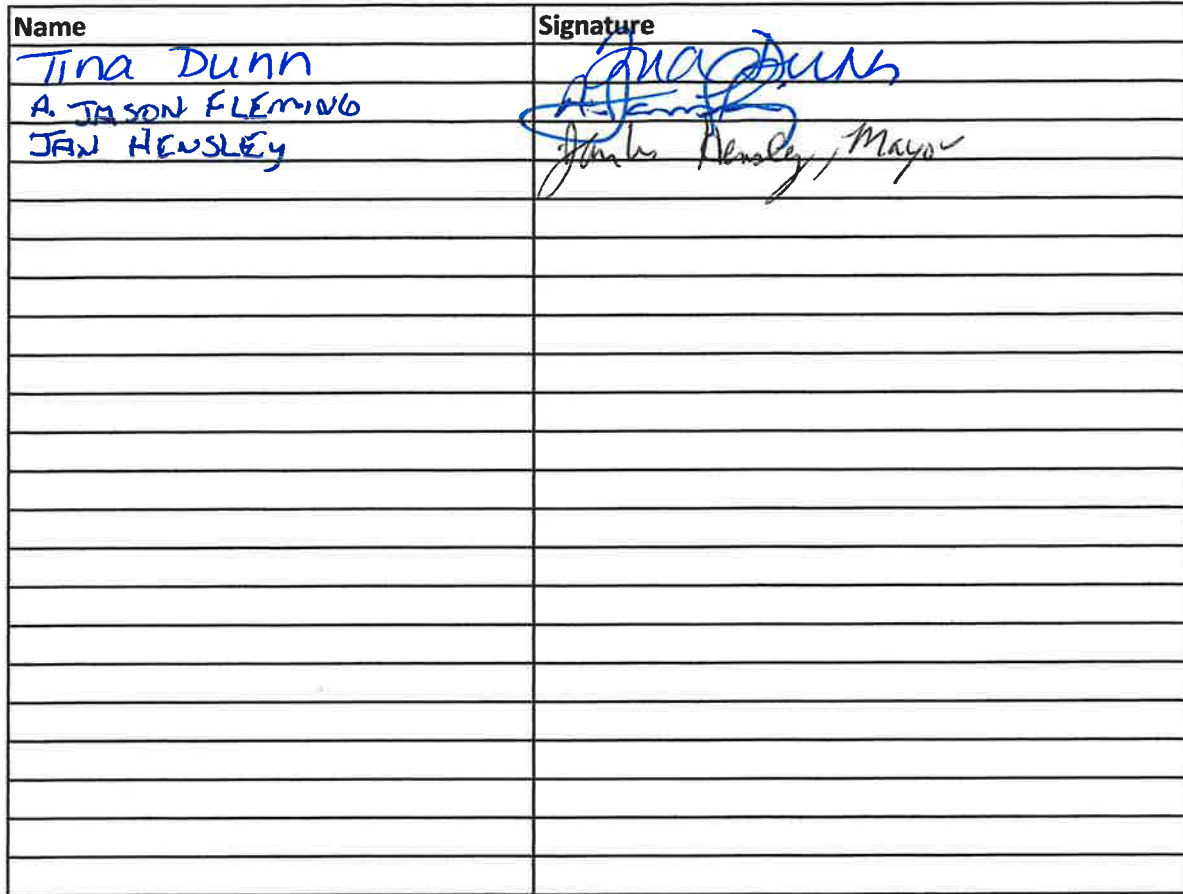 Name Signature
Tina Dunn Tina Dunn
A. JASON FLEMING
JAN HENSLEY Hensley, Mayor